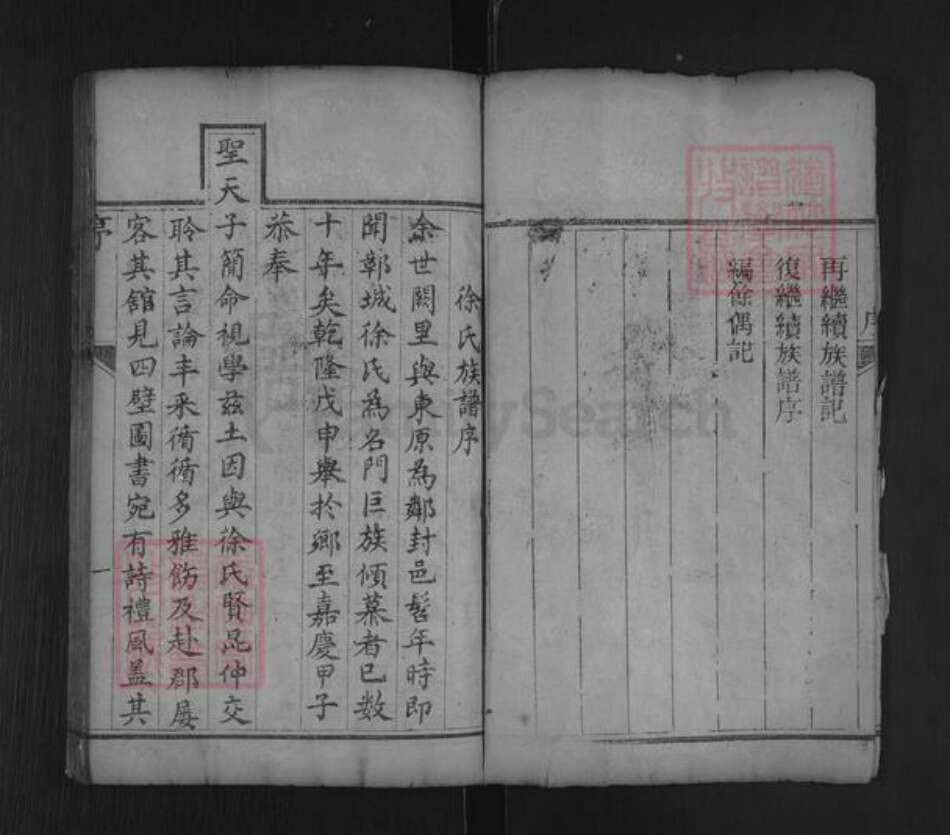 再繼續族譜記
復繼續族譜序
編餘偶記
徐氏族譜序
余世闕里與東原為鄰封邑髫年時即
聞鄣城徐氏為名門巨族傾慕者已數
十年矣乾隆戊申舉於鄉至嘉慶甲子
恭奉
聖天子簡命視學茲土因與徐氏賢昆仲交
聆其言論丰采循循多雅飭及赴郡屢
客其舘見四壁圖書宛有詩禮風蓋其
序
一
FamilySearch